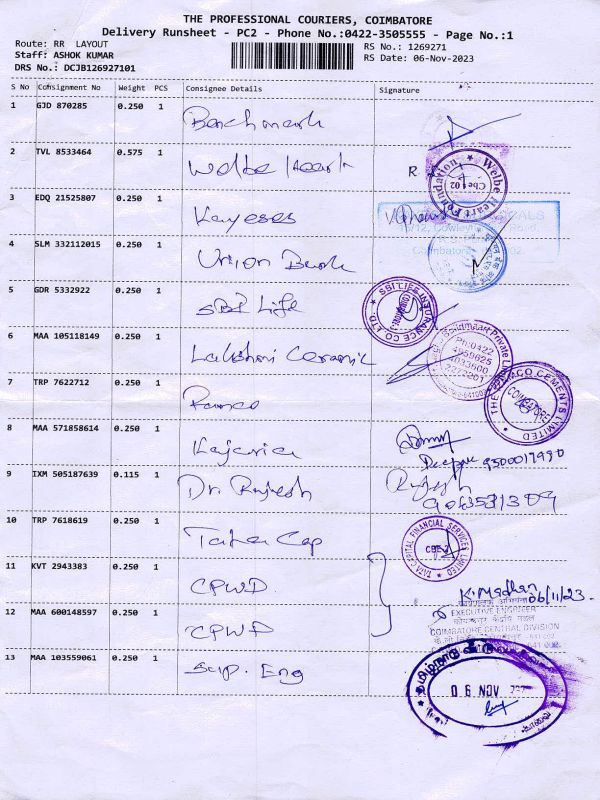 THE PROFESSIONAL COURIERS, COIMBATORE
Delivery Runsheet - PC2 - Phone No.:0422-3505555 - Page No.:1
Route: RR LAYOUT
RS No.: 1269271
Staff: ASHOK KUMAR
RS Date: 06-Nov-2023
DRS No.: DCJB126927101
S No Consignment No Weight PCS Consignee Details Signature
1 GJD 870285 0.250 1
Benchmark
2 TVL 8533464 0.575 1
Welbe Heart R
Welbe Heart Foundation
Cbe-02
3 EDQ 21525807 0.250 1
Kayeses
4 SLM 332112015 0.250 1
Union Bank
5 GDR 5332922 0.250 1
SBI Life
SBI LIFE INSURANCE CO LTD.
6 MAA 105118149 0.250 1
Lakshmi Ceramic
Buildmaart Private
Ph:0422
7 TRP 7622712 0.250 1
Ramco
THE RAMCO CEMENTS LIMITED
COIMBATORE
8 MAA 571858614 0.250 1
Kajaria
Deepa 9500017990
9 IXM 505187639 0.115 1
Dr. Rajesh
Rajesh
10 TRP 7618619 0.250 1
Tata Cap
TATA CAPITAL FINANCIAL SERVICES LIMITED
CBE-2
11 KVT 2943383 0.250 1
CPWD
K. Madhan
06/11/23.
12 MAA 600148597 0.250 1
CPWD
EXECUTIVE ENGINEER
COIMBATORE CENTRAL DIVISION
13 MAA 103559061 0.250 1
Sup. Eng
06 NOV